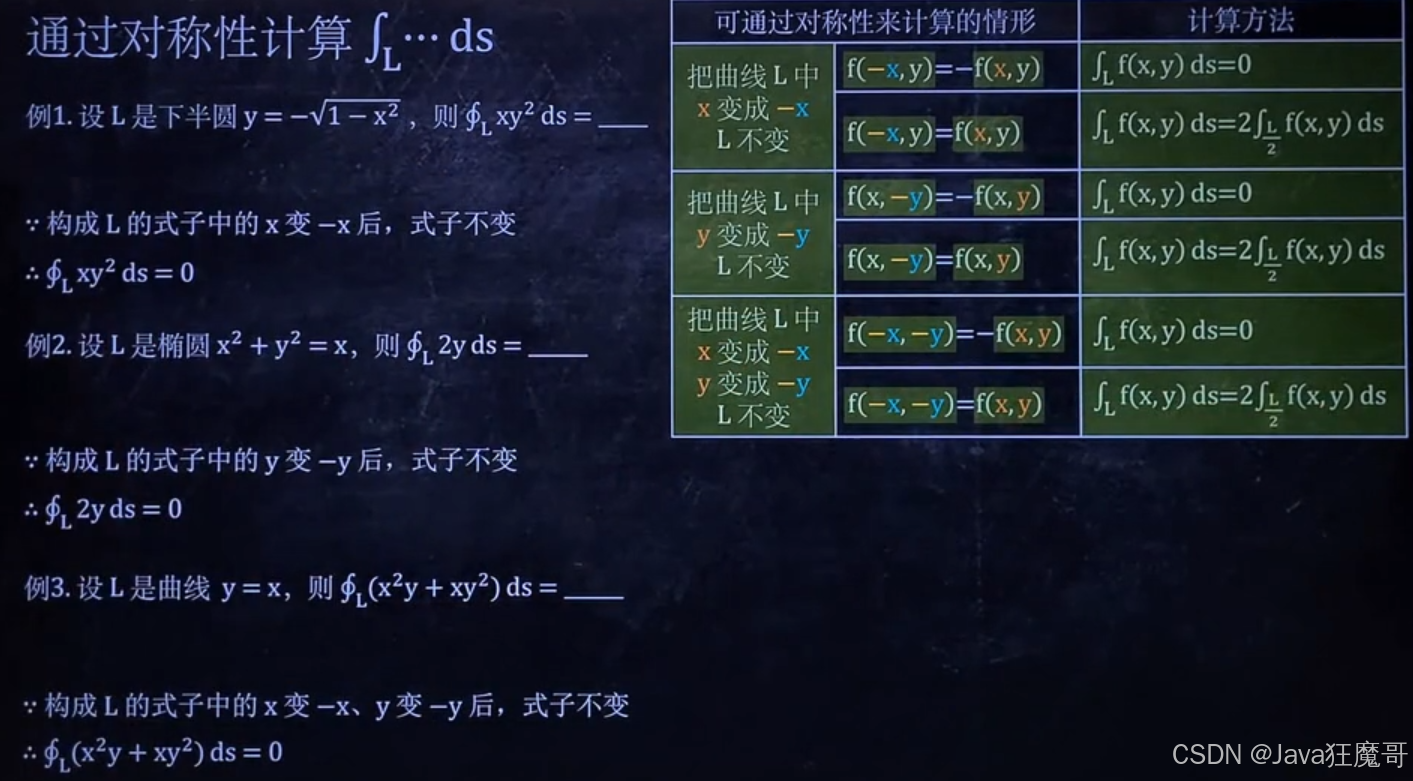 通过对称性计算 ∫_L ⋯ ds
例1. 设 L 是下半圆 y = −√(1 − x²) ，则 ∮_L xy² ds = ____
∵ 构成 L 的式子中的 x 变 −x 后，式子不变
∴ ∮_L xy² ds = 0
例2. 设 L 是椭圆 x² + y² = x，则 ∮_L 2y ds = ____
∵ 构成 L 的式子中的 y 变 −y 后，式子不变
∴ ∮_L 2y ds = 0
例3. 设 L 是曲线 y = x，则 ∮_L (x²y + xy²) ds = ____
∵ 构成 L 的式子中的 x 变 −x、y 变 −y 后，式子不变
∴ ∮_L (x²y + xy²) ds = 0
可通过对称性来计算的情形
计算方法
把曲线 L 中
x 变成 −x
L 不变
f(−x,y)=−f(x,y)
∫_L f(x,y) ds=0
f(−x,y)=f(x,y)
∫_L f(x,y) ds=2∫_{L/2} f(x,y) ds
把曲线 L 中
y 变成 −y
L 不变
f(x,−y)=−f(x,y)
∫_L f(x,y) ds=0
f(x,−y)=f(x,y)
∫_L f(x,y) ds=2∫_{L/2} f(x,y) ds
把曲线 L 中
x 变成 −x
y 变成 −y
L 不变
f(−x,−y)=−f(x,y)
∫_L f(x,y) ds=0
f(−x,−y)=f(x,y)
∫_L f(x,y) ds=2∫_{L/2} f(x,y) ds
CSDN @Java狂魔哥